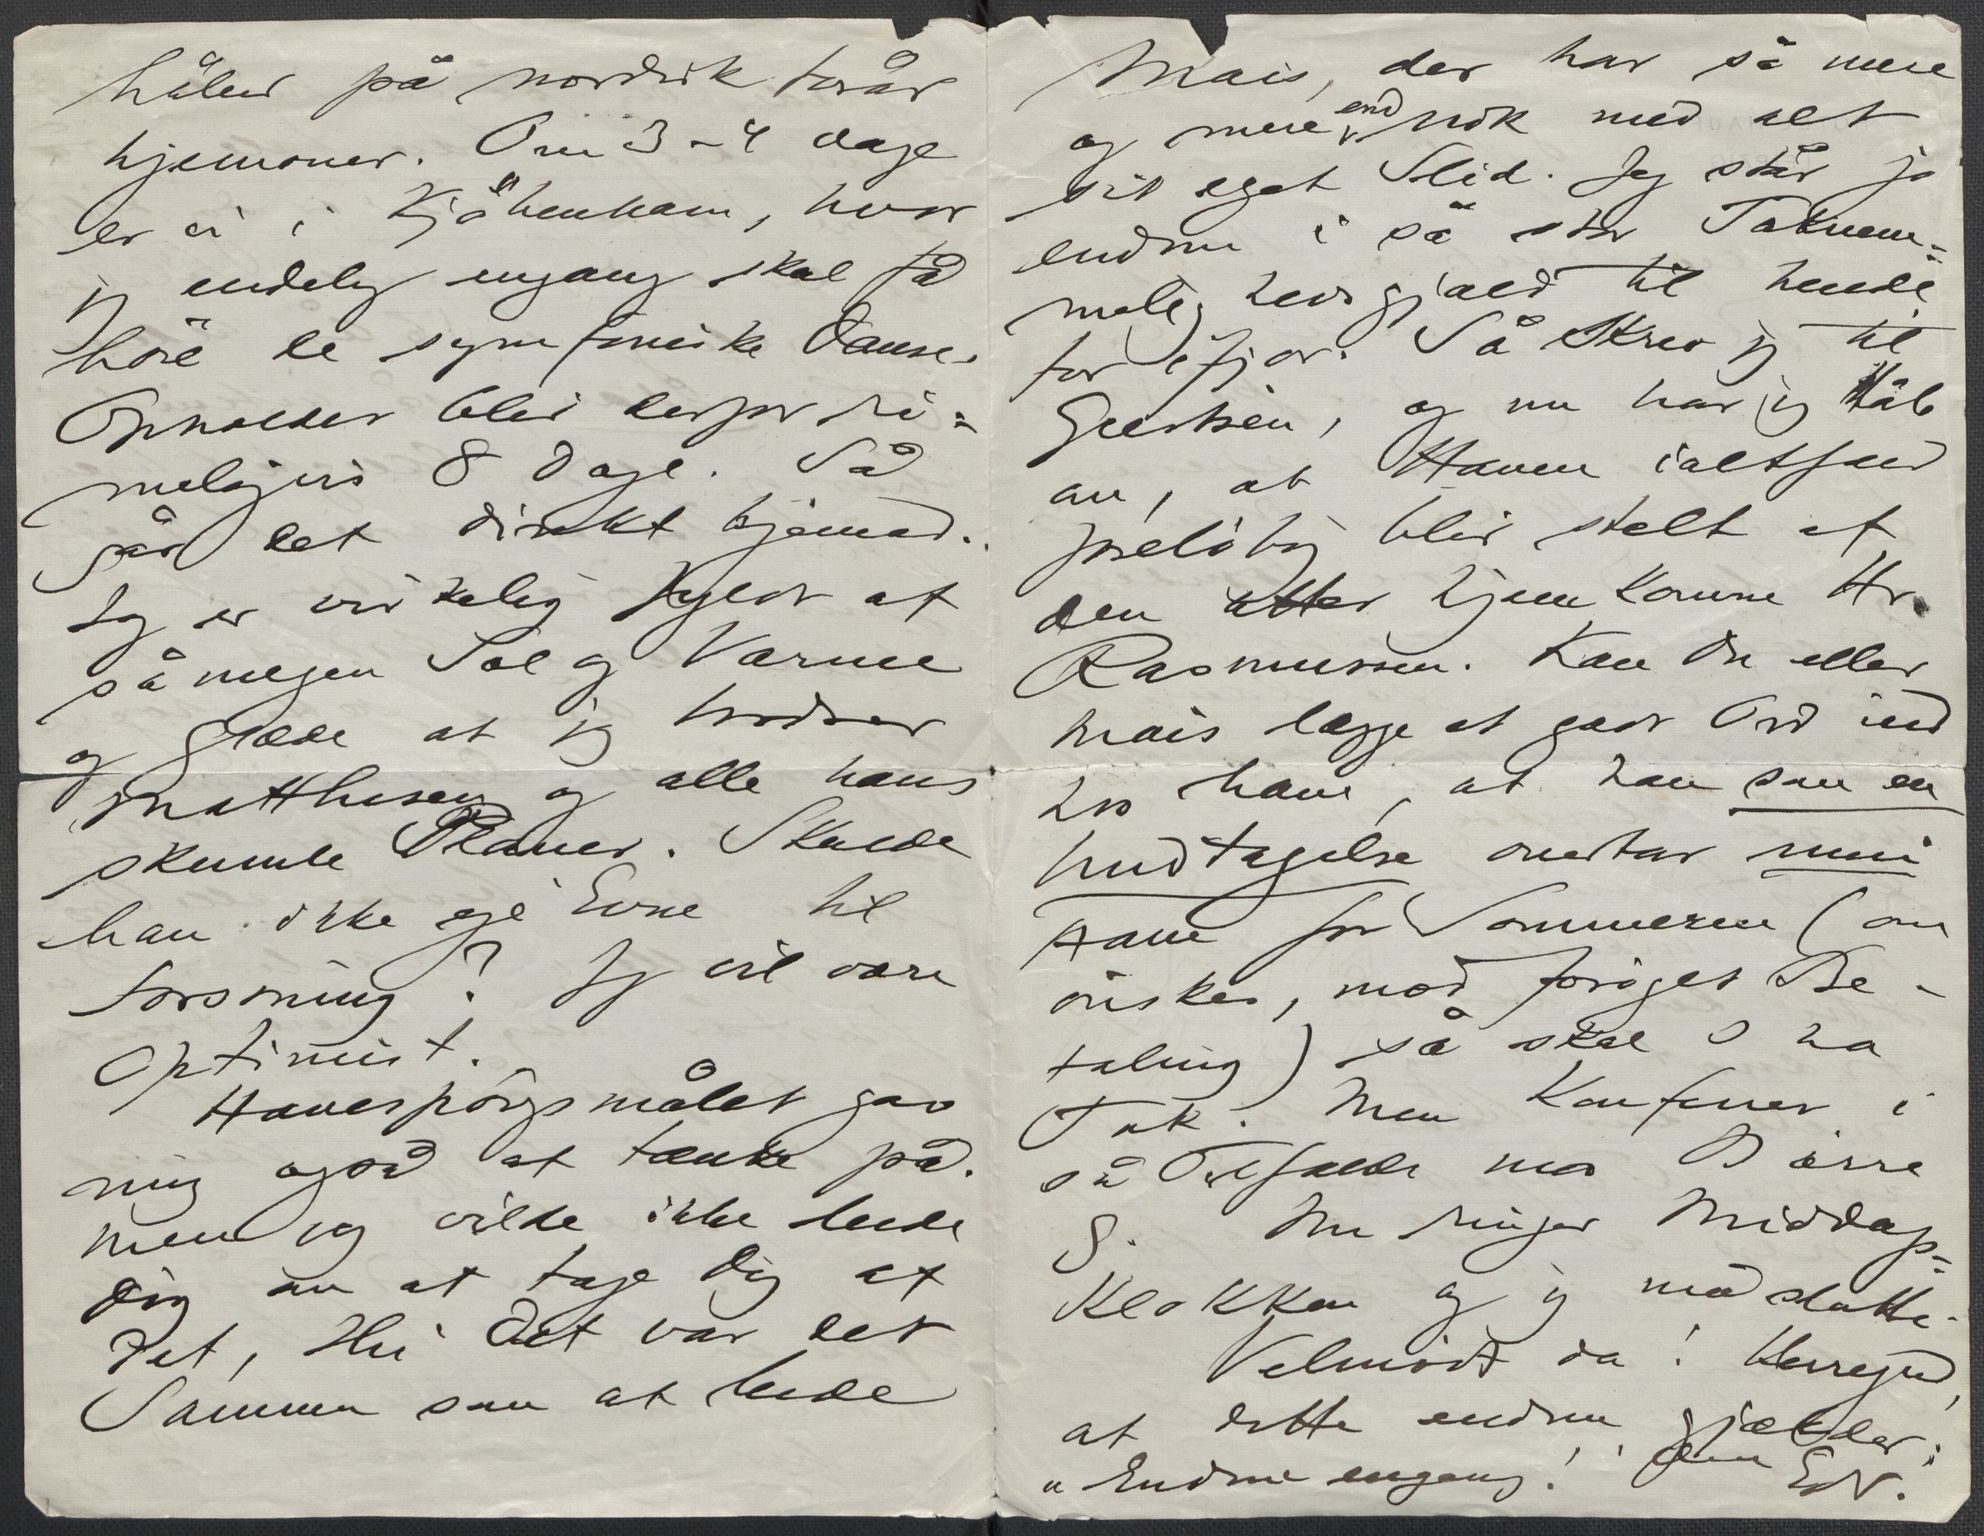 håber på nordisk Forår
hjemover. Om 3-4 dage
er vi i Kjöbenhavn, hvor
jeg endelig engang skal få
höre de symfoniske Danse.
Opholdet blir derfor ri=
meligvis 8 Dage. Så
går det direkt hjemad.
Jeg er virkelig fyldt af
så megen Sol og Varme
og Glæde at jeg trodser
Matthisen og alle hans
skumle Planer. Skulde
han ikke eje Evne til
Forsoning? Jeg vil være
Optimist.
Havespörgsmålet gav
mig også at tænke på.
men jeg vilde ikke bede
Dig om at tage Dig af
det, thi det var det
Samme som at bede
Mais, der har så mere
og mere end nok med alt
sit eget Slid. Jeg står jo
endnu i så stor Taknem=
meligheds gjæld til hende
for ifjor. Så skrev jeg til
Geertsen, og nu har jeg Håb
om, at Haven ialtfald
forelöbig blir stelt af
den atter hjemkomne Hr.
Rasmussen. Kan Du eller
Mais lægge et godt Ord ind
hos ham, at han som en
Undtagelse overtar min
Have for Sommeren (om
önskes, mod foröget Be-
taling) så skal I ha
Tak. Men Konferer i
så Tilfælde med Börre
G. Nu ringer Middags=
Klokken og jeg må slutte.
Velmödt da! Herregud,
at dette endnu gjælder:
"Endnu engang!" Din Edv.